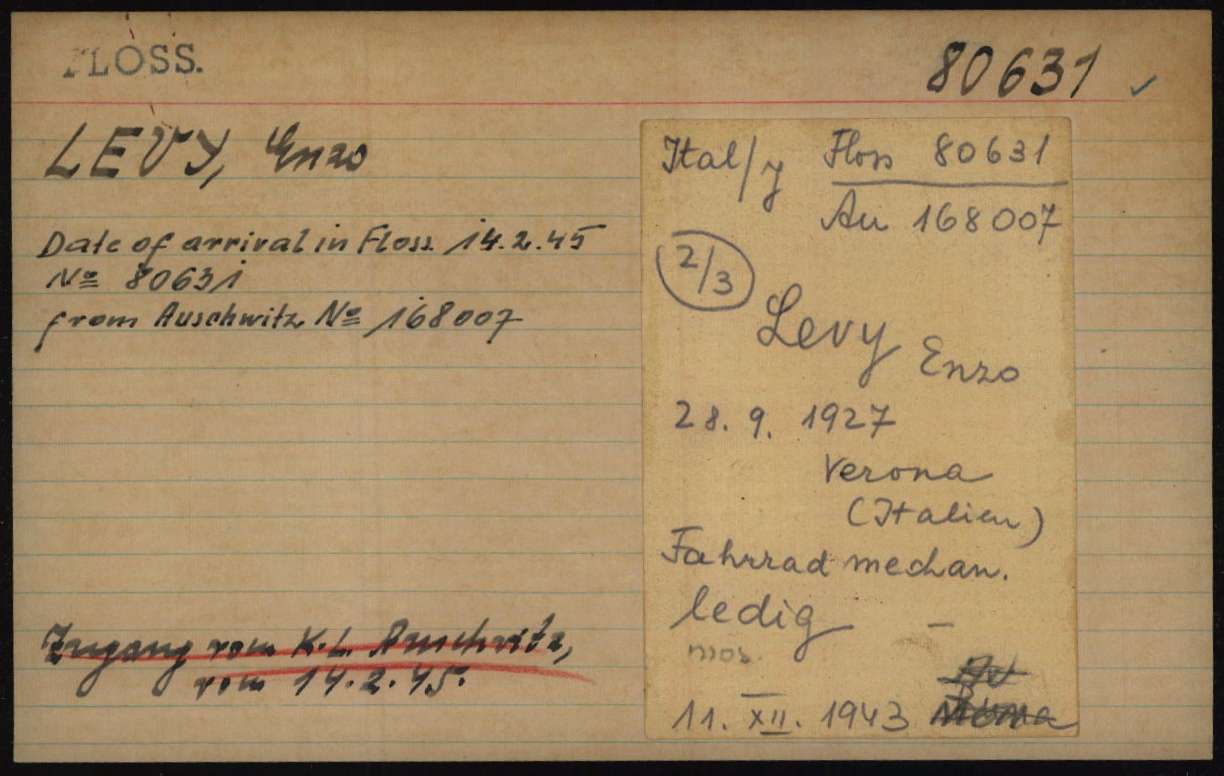 FLOSS.
80631 ✓
LEVY, Enzo
Date of arrival in Floss. 14.2.45
Nº 80631
from Auschwitz Nº 168007
Zugang vom K.L. Auschwitz,
vom 14.2.45.
Ital/J Floss 80631
Au 168007
2/3
Levy Enzo
28. 9. 1927
Verona
(Italien)
Fahrradmechan.
ledig –
mos.
11. XII. 1943